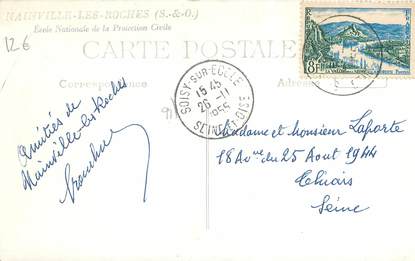 NAINVILLE-LES-ROCHES (S.-&-O.)
École Nationale de la Protection Civile
126
CARTE POSTALE
Correspondance
Adresse
8F
SOISY-SUR-ECOLE
15 45
26 -11
1955
SEINE-ET-OISE
Amitiés de
Nainville-les-Roches
Madame et Monsieur Laporte
18 Ave du 25 Août 1944
Thiais
Seine